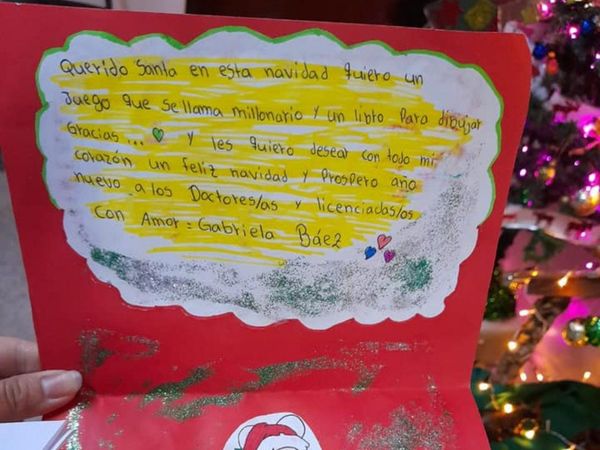 Querido Santa en esta navidad quiero un
Juego que se llama millonario y un libro Para dibujar
Gracias... y les quiero desear con todo mi
corazón un feliz navidad y Prospero año
nuevo a los Doctores/as y licenciadas/os
Con Amor = Gabriela Báez